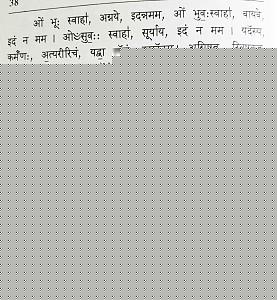 38
ओं भूः स्वाहा, अग्नये, इदन्नमम, ओं भुवःस्वाहा, वायवे,
इदं न मम । ओंऽसुवः स्वाहा, सूर्याय, इदं न मम । यदस्य,
कर्मणः, अत्यरीरिचं, यद्वा